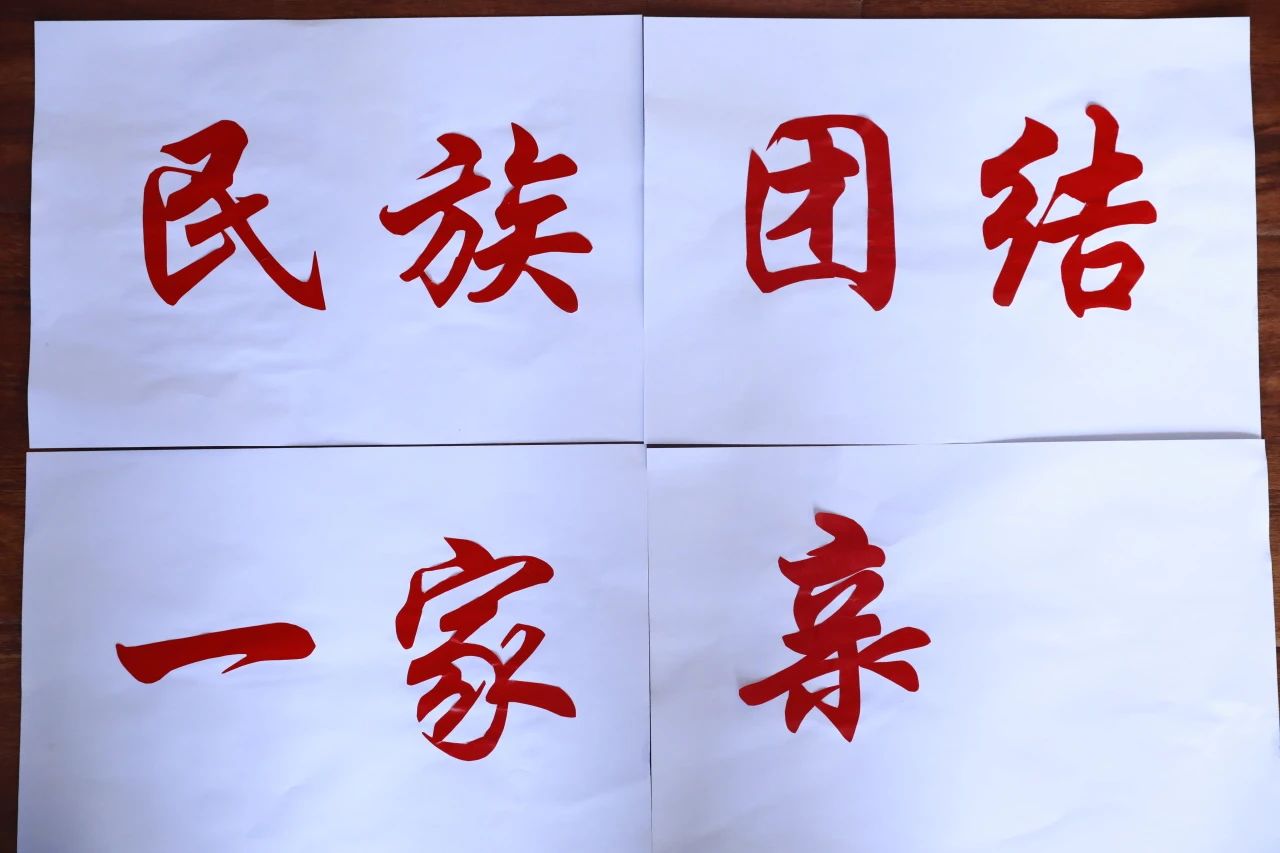 民族团结
一家亲